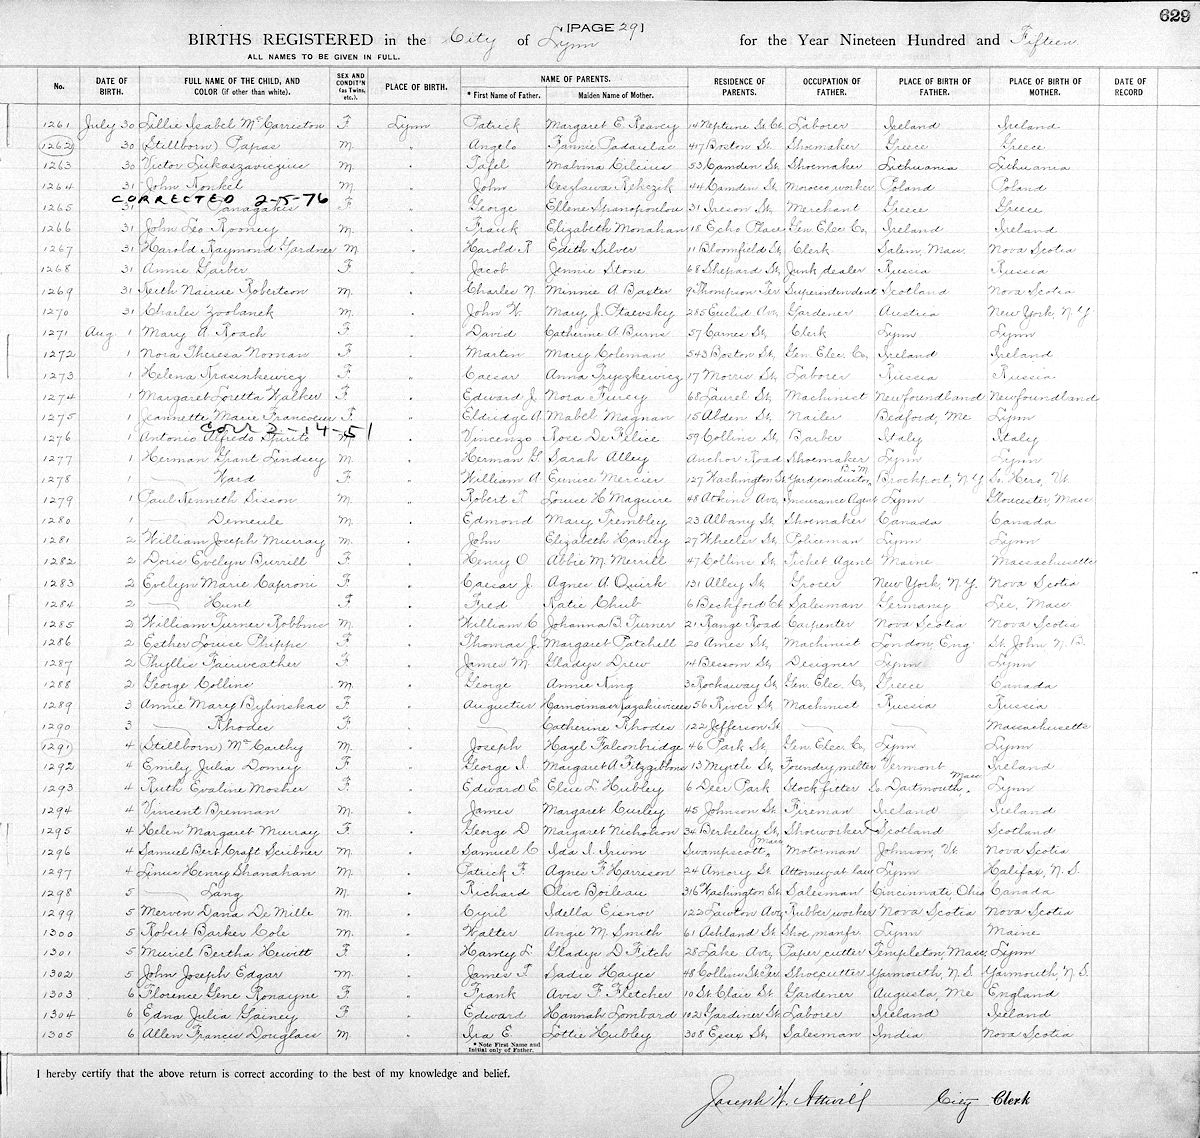 629
[PAGE 29]
BIRTHS REGISTERED in the City of Lynn for the Year Nineteen Hundred and Fifteen
ALL NAMES TO BE GIVEN IN FULL.
No. DATE OF BIRTH. FULL NAME OF THE CHILD, AND COLOR (if other than white). SEX AND CONDIT'N (as Twins, etc.). PLACE OF BIRTH. NAME OF PARENTS. * First Name of Father. Maiden Name of Mother. RESIDENCE OF PARENTS. OCCUPATION OF FATHER. PLACE OF BIRTH OF FATHER. PLACE OF BIRTH OF MOTHER. DATE OF RECORD
1261 July 30 Lillie Isabel McCarriston F. Lynn Patrick Margaret E. Reavey 14 Neptune St. Ct. Laborer Ireland Ireland
1262 30 (Stillborn) Papas M. " Angelo Fannie Padaulas 417 Boston St. Shoemaker Greece Greece
1263 30 Victor Lukaszaviczius M. " Tafel Mabina Cilcius 53 Camden St. Shoemaker Lithuania Lithuania
1264 31 John Konkel M. " John Ceszlawa Rekczik 44 Camden St. Morocco worker Poland Poland
CORRECTED 2-5-76
1265 31 Panagakis F. " George Ellene Spanopoulou 31 Ireson St. Merchant Greece Greece
1266 31 John Leo Rooney M. " Frank Elizabeth Monahan 18 Echo Place Gen. Elec. Co. Ireland Ireland
1267 31 Harold Raymond Gardner M. " Harold R Edith Silver 11 Bloomfield St. Clerk Salem, Mass. Nova Scotia
1268 31 Annie Garber F. " Jacob Jennie Stone 68 Shepard St. Junk dealer Russia Russia
1269 31 Keith Nairne Robertson M. " Charles N. Minnie A Baxter 9 Thompson Ter Superintendent Scotland Nova Scotia
1270 31 Charles Zvolanek M. " John W. Mary J. Ptaevsky 285 Euclid Ave. Gardener Austria New York, N.Y.
1271 Aug 1 Mary A. Roach F. " David Catherine A. Burns 57 Carnes St. Clerk Lynn Lynn
1272 1 Nora Theresa Noonan F. " Martin Mary Coleman 543 Boston St. Gen. Elec. Co. Ireland Ireland
1273 1 Helena Krasinkewicz F. " Caesar Anna Tryczkewicz 17 Morris St. Laborer Russia Russia
1274 1 Margaret Loretta Walker F. " Edward J. Nora Furey 68 Laurel St. Machinist Newfoundland Newfoundland
1275 1 Jeannette Marie Francoeur F. " Eldridge A. Mabel Magnan 15 Alden St. Nailer Bedford, Me Lynn
Corr 2-14-51
1276 1 Antonio Alfredo Spirito M. " Vincenzo Rose De Felice 59 Collins St. Barber Italy Italy
1277 1 Herman Grant Lindsey M. " Herman G Sarah Alley Anchor Road Shoemaker Lynn Lynn
1278 1 Ward F. " William A Eunice Mercier 127 Washington St. Yard conductor, B & M Brockport, N.Y. So. Hero, Vt.
1279 1 Paul Kenneth Sisson M. " Robert T. Louise H Maguire 48 Atkins Ave. Insurance Agent Lynn Gloucester, Mass
1280 1 Demeule M. " Edmond Mary Trembley 23 Albany St. Shoemaker Canada Canada
1281 2 William Joseph Murray M. " John Elizabeth Hanley 27 Wheeler St. Policeman Lynn Lynn
1282 2 Doris Evelyn Burrill F. " Henry O. Abbie M. Merrill 47 Collins St. Ticket Agent Maine Massachusetts
1283 2 Evelyn Marie Caproni F. " Caesar J. Agnes A Quirk 131 Alley St. Grocer New York, N.Y. Nova Scotia
1284 2 Hunt F. " Fred Katie Chub 6 Beckford Ct. Salesman Germany Lee, Mass
1285 2 William Turner Robbins M. " William C Johanna B. Turner 21 Range Road Carpenter Nova Scotia Nova Scotia
1286 2 Esther Louise Phipps F. " Thomas J. Margaret Patchell 20 Ames St. Machinist London, Eng St. John N.B.
1287 2 Phyllis Fairweather F. " James M. Gladys Drew 14 Bessom St. Designer Lynn Lynn
1288 2 George Collins M. " George Annie King 3 Rockaway St. Gen. Elec. Co. Greece Canada
1289 3 Annie Mary Bylinskas F. " Augustus 56 River St. Machinist Russia Russia
1290 3 Rhodes F. " Catherine Rhodes 122 Jefferson St Massachusetts
1291 4 (Stillborn) McCarthy M. " Joseph Hazel Falconbridge 46 Park St. Gen. Elec. Co. Lynn Lynn
1292 4 Emily Julia Domey F. " George I. Margaret A Fitzgibbons 13 Myrtle St. Foundry melter Vermont Ireland
1293 4 Ruth Evaline Mosher F. " Edward E. Elsie L Hubley 6 Deer Park Stock fitter S. Dartmouth, Mass. Lynn
1294 4 Vincent Brennan M. " James Margaret Curley 45 Johnson St. Fireman Ireland Ireland
1295 4 Helen Margaret Murray F. " George D Margaret Nicholson 34 Berkeley St. Shoeworker Scotland Scotland
1296 4 Samuel Bert Craft Scribner M. " Samuel C Ida I. Irwin Swampscott, Mass Motorman Johnson, Vt. Nova Scotia
1297 4 Linus Henry Shanahan M. " Patrick F Agnes F Harrison 24 Amory St. Attorney at law Lynn Halifax, N.S.
1298 5 Lang M. " Richard Olive Boileau 316 Washington St. Salesman Cincinnati, Ohio Canada
1299 5 Merven Dana De Mille M. " Cyril Idella Eisnor 122 Lawton Ave. Rubber worker Nova Scotia Nova Scotia
1300 5 Robert Barker Cole M. " Walter Angie M. Smith 61 Ashland St. Shoe manfr. Lynn Maine
1301 5 Muriel Bertha Hewitt F. " Harvey L. Gladys D Fitch 28 Lake Ave. Paper cutter Templeton, Mass. Lynn
1302 5 John Joseph Edgar M. " James T. Sadie Hayes 48 Collins St. Ter Shoecutter Yarmouth, N.S. Yarmouth, N.S.
1303 6 Florence Gene Ronayne F. " Frank Avis F Fletcher 10 St. Clair St. Gardener Augusta, Me England
1304 6 Edna Julia Gainey F. " Edward Hannah Lombard 102 Gardiner St. Laborer Ireland Ireland
1305 6 Allen Francis Douglass M " Ira E. Lottie Hubley 308 Essex St. Salesman India Nova Scotia
* Note First Name and Initial only of Father.
I hereby certify that the above return is correct according to the best of my knowledge and belief.
Joseph W. Attwill City Clerk